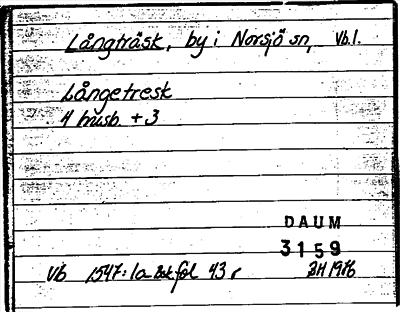 Långträsk, by i Norsjö sn, Vb.l.
Långetresk
4 husb. + 3
DAUM
3159
Vb 1547:1a fol 43 r
BH 1976